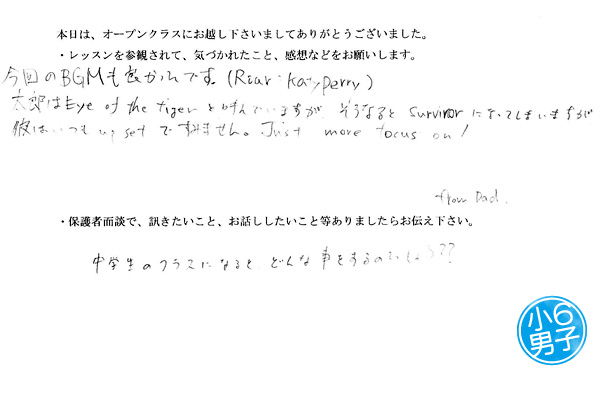 本日は、オープンクラスにお越し下さいましてありがとうございました。
・レッスンを参観されて、気づかれたこと、感想などをお願いします。
今回のBGMも良かんです。(Roar・Katy perry)
太郎はEye of the tiger と叫んでいますが、そうなると survivor になってしまいますが
彼はいつも up set ですみません。Just more focus on!
from Dad.
・保護者面談で、訊きたいこと、お話ししたいこと等ありましたらお伝え下さい。
中学生のクラスになると、どんな事をするのでしょう??
小6
男子